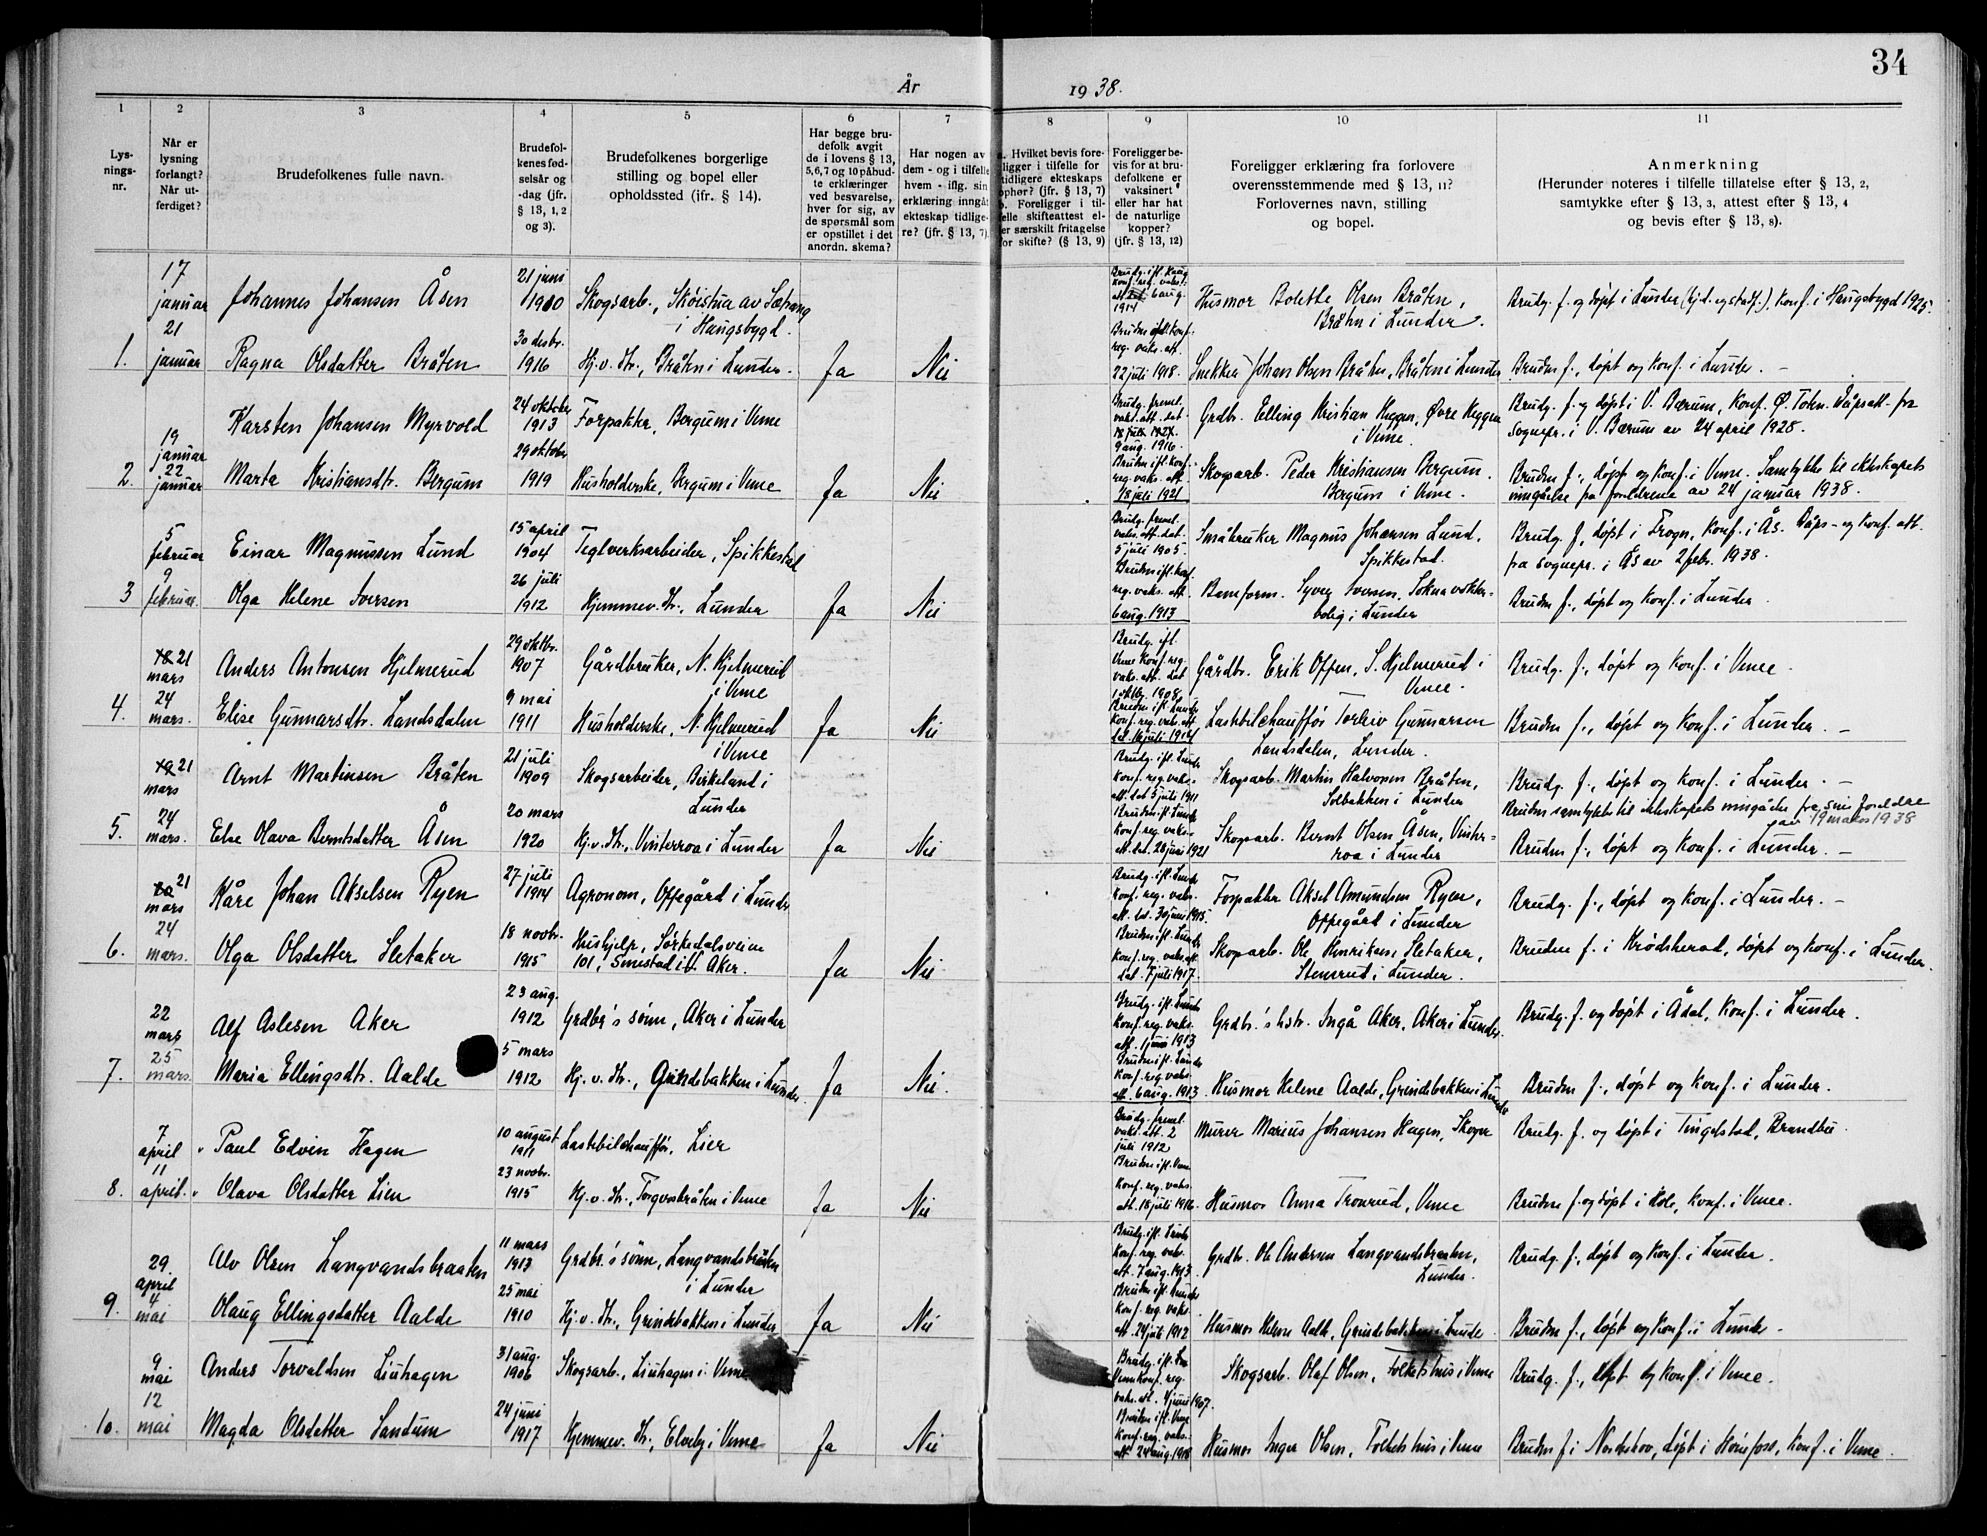 34
År 1938.
1
2
3
4
5
6
7
8
9
10
11
Lys-
nings-
nr.
Når er
lysning
forlangt?
Når ut-
ferdiget?
Brudefolkenes fulle navn.
Brudefol-
kenes fød-
selsår og
-dag (jfr.
§ 13, 1, 2
og 3).
Brudefolkenes borgerlige
stilling og bopel eller
opholdssted (jfr. § 14).
Har begge bru-
defolk avgit
de i lovens § 13,
5,6,7 og 10 påbud-
te erklæringer
ved besvarelse,
hver for sig, av
de spørsmål som
er opstillet i det
anordn. skema?
Har nogen av
dem - og i tilfelle
hvem - iflg. sin
erklæring inngåt
ekteskap tidlige-
re? (jfr. § 13, 7).
a. Hvilket bevis fore-
ligger i tilfelle for
tidligere ekteskaps
ophør? (jfr. § 13, 7)
b. Foreligger i til-
felle skifteattest el-
ler særskilt fritagelse
for skifte? (§ 13, 9)
Foreligger be-
vis for at bru-
defolkene er
vaksinert
eller har hat
de naturlige
kopper?
(jfr. § 13, 12)
Foreligger erklæring fra forlovere
overensstemmende med § 13, 11?
Forlovernes navn, stilling
og bopel.
Anmerkning
(Herunder noteres i tilfelle tillatelse efter § 13, 2,
samtykke efter § 13, 3, attest efter § 13, 4
og bevis efter § 13, 8).
17
januar
Johannes Johansen Åsen
21 juni
1910
Skogsarb., Skòistua av Sætrang
i Haugsbygd.
Brudg. ifl. Haug
konf. reg. vaks.
att. 6 aug.
1914
Husmor Bolette Olsen Bråten,
Bråtn i Lunder.
Brudg. f. og døpt i Lunder (hjd. og stadf.). Konf. i Haugsbygd 1925.
1.
21
januar
Ragna Olsdatter Bråten
30 desbr.
1916
Hj.v. dtr., Bråten i Lunder.
Ja
Nei
Bruden ifl. konf.
reg. vaks. att.
22 juli 1918.
Snekker Johan Olsen Bråten, Bråten i Lunder
Bruden f., døpt og konf. i Lunder. -
19
januar
Karsten Johansen Myrvold
24 oktober
1913
Forpakter, Bergum i Veme
Brudg. fremel.
vaks. att. dat.
9 aug. 1916.
Grdbr. Elling Kristian Heggen, Øvre Heggen
i Veme.
Brudg. f. og døpt i V. Bærum, konf. Ø. Toten. Dåpsatt. fra
sognepr. i V. Bærum av 24 april 1928.
2.
22
januar
Marta Kristiansdtr. Bergum
29 oktober
1919
Husholderske, Bergum i Veme
Ja
Nei
Bruden ifl. konf.
reg. vaks. att.
18 juli 1921
Skogsarb. Peder Kristiansen Bergum.
Bergum i Veme.
Bruden f., døpt og konf. i Veme. Samtykke til ekteskapets
inngåelse fra foreldrene av 24 januar 1938.
5
februar
Einar Magnussen Lund
15 april
1904
Teglverksarbeider, Spikkestad
Brudg. fremel.
vaks. att. dat.
5 juli 1905.
Småbruker Magnus Johansen Lund.
Spikkestad.
Brudg. f., døpt i Frogn, konf. i Ås. Dåps- og konf. att.
fra sognepr. i Ås av 2 febr. 1938.
3
9
februar.
Olga Helene Iversen
26 juli
1912
Hjemmev. dtr., Lunder
Ja
Nei
Bruden ifl. konf.
reg. vaks. att.
6 aug. 1913
Baneform. Syver Iversen, Sokna vokter-
bolig i Lunder
Bruden f., døpt og konf. i Lunder.
18 21
mars
Anders Antonsen Hjelmerud
29 oktbr.
1907
Gårdbruker, N. Hjelmerud
i Veme
Brudg. ifl.
Veme konf. reg.
vaks. att. dat
1 oktbr. 1908.
Gårdbr. Erik Offen, S. Hjelmerud i
Veme.
Brudg. f., døpt og konf. i Veme.
4.
24
mars.
Elise Gunnarsdtr. Landsdalen
9 mai
1911
Husholderske, N. Hjelmerud
i Veme
Ja
Nei
Bruden ifl. Lunder
konf. reg. vaks. att.
dat. 16 juli 1914
Lastebilchauffør Torleiv Gunnarsen
Landsdalen, Lunder.
Bruden f., døpt og konf. i Lunder. -
19 21
mars
Arnt Martinsen Bråten
21 juli
1909
Skogsarbeider, Birkeland i
Lunder
Brudg. ifl. Lunder
konf. reg. vaks.
att. dat 5 juli 1911
Skogsarb. Martin Halvorsen Bråten,
Solbakken i Lunder
Brudg. f., døpt og konf. i Lunder. -
Brudens samtykke til ekteskapets inngåelse fra sine foreldre
av 19 mars 1938
5.
24
mars.
Else Olava Berntsdatter Åsen
20 mars
1920
Hj.v. dtr., Vinterroa i Lunder
Ja
Nei
Bruden ifl. Lunder
konf. reg. vaks.
att. dat. 28 juni 1921
Skogsarb. Bernt Olsen Åsen, Vinter-
roa i Lunder
Bruden f., døpt og konf. i Lunder. -
20 21
mars
Kåre Johan Akselsen Ryen
27 juli
1914
Agronom, Oppegård i Lunder
Brudg. ifl. Lunder
konf. reg. vaks.
att. dat. 30 juni 1915.
Forpakter Aksel Amundsen Ryen,
Oppegård i Lunder
Brudg. f., døpt og konf. i Lunder. -
6.
24
mars.
Olga Olsdatter Sletaker
18 novbr.
1915
Hushjelp, Sørkedalsveien
101, Smestad i V. Aker.
Ja
Nei
Bruden ifl. Lunder
konf. reg. vaks. att.
dat. 7 juli 1917.
Skogsarb. Ole Henriksen Sletaker,
Stensrud i Lunder.
Bruden f. i Krødsherad, døpt og konf. i Lunder.
22
mars
Alf Aslesen Aker
23 aug.
1912
Grdbr's sønn, Aker i Lunder
Brudg. ifl. Lunder
konf. reg. vaks.
att. 1 juni 1913
Grdbr.'s hstr. Ingå Aker, Aker i Lunder.
Brudg. f. og døpt i Ådal, konf. i Lunder.
7.
25
mars.
Maria Ellingsdtr. Aalde
5 mars
1912
Hj. v. dtr., Grindebakken i Lunder.
Ja
Nei.
Bruden ifl. Lunder
konf. reg. vaks.
att. 6 aug. 1913
Husmor Helene Aalde, Grindebakken i Lunder
Bruden f., døpt og konf. i Lunder.
7
april
Paul Edvin Hagen
10 august
1911
Lastebilchauffør, Lier
Brudg. fremel.
vaks. att. 2
juli 1912
Murer Marius Johansen Hagen, Skoger
Brudg. f. og døpt i Tingelstad, Brandbu.
8.
11
april.
Olava Olsdatter Lien
23 novbr.
1915
Hj. v. dtr., i Veme
Ja
Nei
Bruden ifl. Veme
konf. reg. vaks.
att. 18 juli 1916.
Husmor Anna Tronrud, Veme
Bruden f. og døpt i Hole, konf. i Veme.
29
april
Alv Olsen Langvandsbraaten
11 mars
1913
Grdbr's sønn, Langvandsbråten
i Lunder
Brudg. ifl. Lunder
konf. reg. vaks.
att. 7 aug. 1913.
Grdbr. Ole Andersen Langvandsbraaten,
Lunder.
Brudg. f., døpt og konf. i Lunder.
9.
4
mai
Olaug Ellingsdatter Aalde
25 mai
1910
Hj. v. dtr., Grindebakken i Lunder
Ja
Nei
Bruden ifl. Lunder
konf. reg. vaks.
att. 24 juli 1912
Husmor Helene Aalde, Grindebakken i Lunder
Bruden f., døpt og konf. i Lunder -
9
mai
Anders Torvaldsen Liuhagen
31 aug.
1906
Skogsarb., Liuhagen i Veme
Brudg. ifl.
Veme konf. reg.
vaks. att. 4 juni 1907.
Skogsarb. Olaf Olsen, Folkets hus i Veme
Brudg. f., døpt og konf. i Veme.
10.
12
mai
Magda Olsdatter Sandum
24 juni
1917
Hjemmev. dtr., Elveby i Veme
Ja
Nei
Bruden ifl. Veme
konf. reg. vaks.
att 24 aug. 1918
Husmor Inger Olsen, Folkets hus i Veme
Bruden f. i Norderhov, døpt i Hønefoss, konf. i Veme.